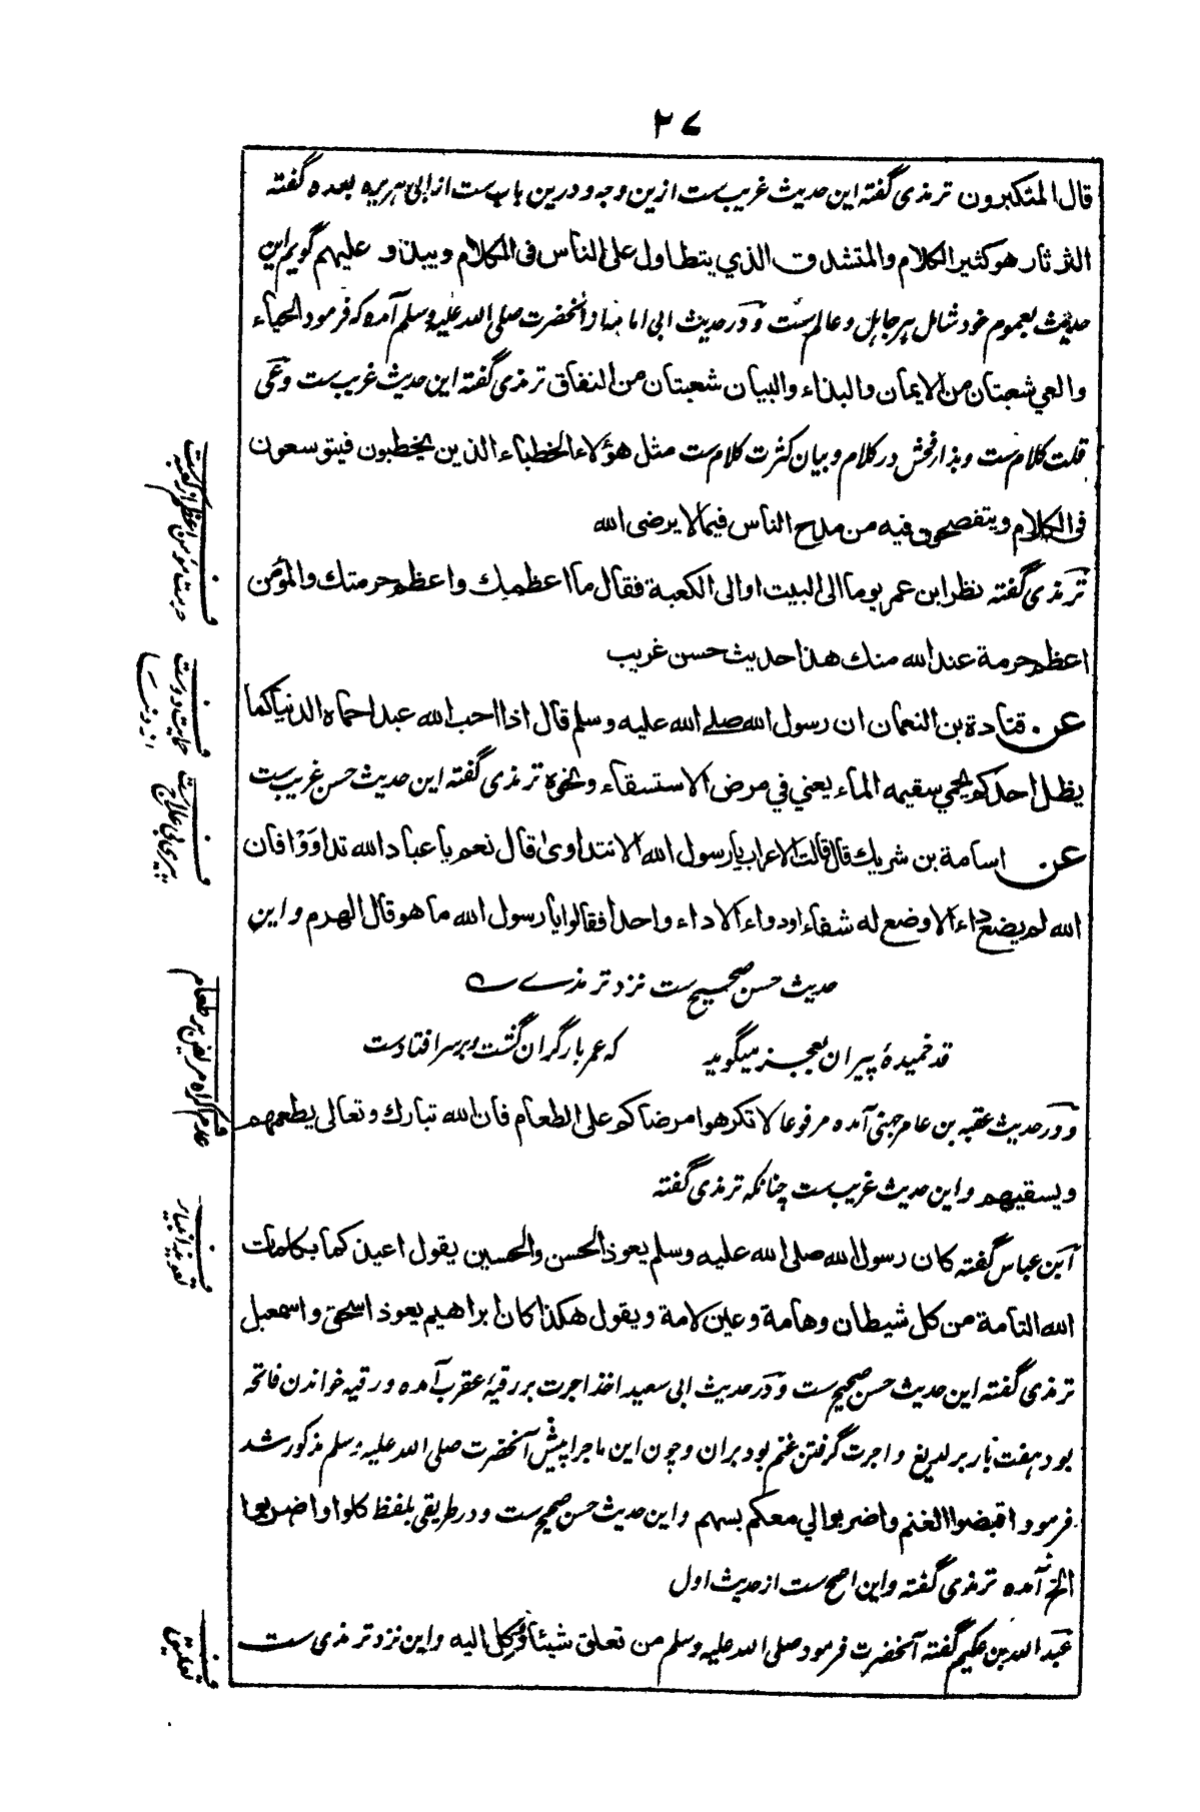 ٢٧
قال المتكبرون ترمذی گفته این حدیث غریب ست ازین وجه و درین باب ست از ابی هریره بعده گفته
الثرثار هو كثير الكلام والمتشدق الذي يتطاول على الناس في الكلام ويبذو عليهم گویم این
حدیث بعموم خود شامل هر جاهل و عالم ست و در حدیث ابی امامه از آنحضرت صلی الله علیه وسلم آمده که فرمود الحياء
والعي شعبتان من الايمان والبذاء والبيان شعبتان من النفاق ترمذی گفته این حدیث غریب ست و عی
قلت کلام ست و بذا رفحش در کلام و بیان کثرت کلام ست مثل هؤلاء الخطباء الذين يخطبون فيتوسعون
في الكلام ويتفصحون فيه من مدح الناس فيما لا يرضى الله
ترمذی گفته نظر ابن عمر يوما الى البيت او الى الكعبة فقال ما اعظمك واعظم حرمتك والمؤمن
اعظم حرمة عند الله منك هذا حديث حسن غريب
عن قتادة بن النعمان ان رسول الله صلى الله عليه وسلم قال اذا احب الله عبدا حماه الدنيا كما
يظل احدكم يحمي سقيمه الماء يعني في مرض الاستسقاء ونحوه ترمذی گفته این حدیث حسن غریب ست
عن اسامة بن شريك قال قالت الاعراب يا رسول الله الا نتداوى قال نعم يا عباد الله تداووا فان
الله لم يضع داء الا وضع له شفاء او دواء الا داء واحدا فقالوا يا رسول الله ما هو قال الهرم و این
حدیث حسن صحیح ست نزد ترمذی ے
قد خمیدۂ پیران بعجز میگوید که عمر بار گران گشت و بر سر افتادست
و در حدیث عقبه بن عامر جهنی آمده مرفوعا لا تكرهوا مرضاكم على الطعام فان الله تبارك وتعالى يطعمهم
ويسقيهم و این حدیث غریب ست چنانکه ترمذی گفته
ابن عباس گفته كان رسول الله صلى الله عليه وسلم يعوذ الحسن والحسين يقول اعيذكما بكلمات
الله التامة من كل شيطان وهامة وعين لامة ويقول هكذا كان ابراهيم يعوذ اسحق واسمعيل
ترمذی گفته این حدیث حسن صحیح ست و در حدیث ابی سعید اخذ اجرت بر رقیهٔ عقرب آمده و رقیه خواندن فاتحه
بود هفت بار بر لدیغ و اجرت گرفتن غنم بود بران و چون این ماجرا پیش آنحضرت صلی الله علیه وسلم مذکور شد
فرمود اقبضوا الغنم واضربوا لي معكم بسهم و این حدیث حسن صحیح ست و در طریقی بلفظ كلوا واضربوا
الخ آمده ترمذی گفته و این اصح ست از حدیث اول
عبد الله بن عکیم گفته آنحضرت فرمود صلی الله علیه وسلم من تعلق شيئا وكل اليه و این نزد ترمذی ست
حرمت مؤمن اعظم از کعبه ست
حمایت دوست از دنیا
پیری بی علاج ست
عدم اکراه مریض بر طعام
تعویذ انبیاء
تعلیق